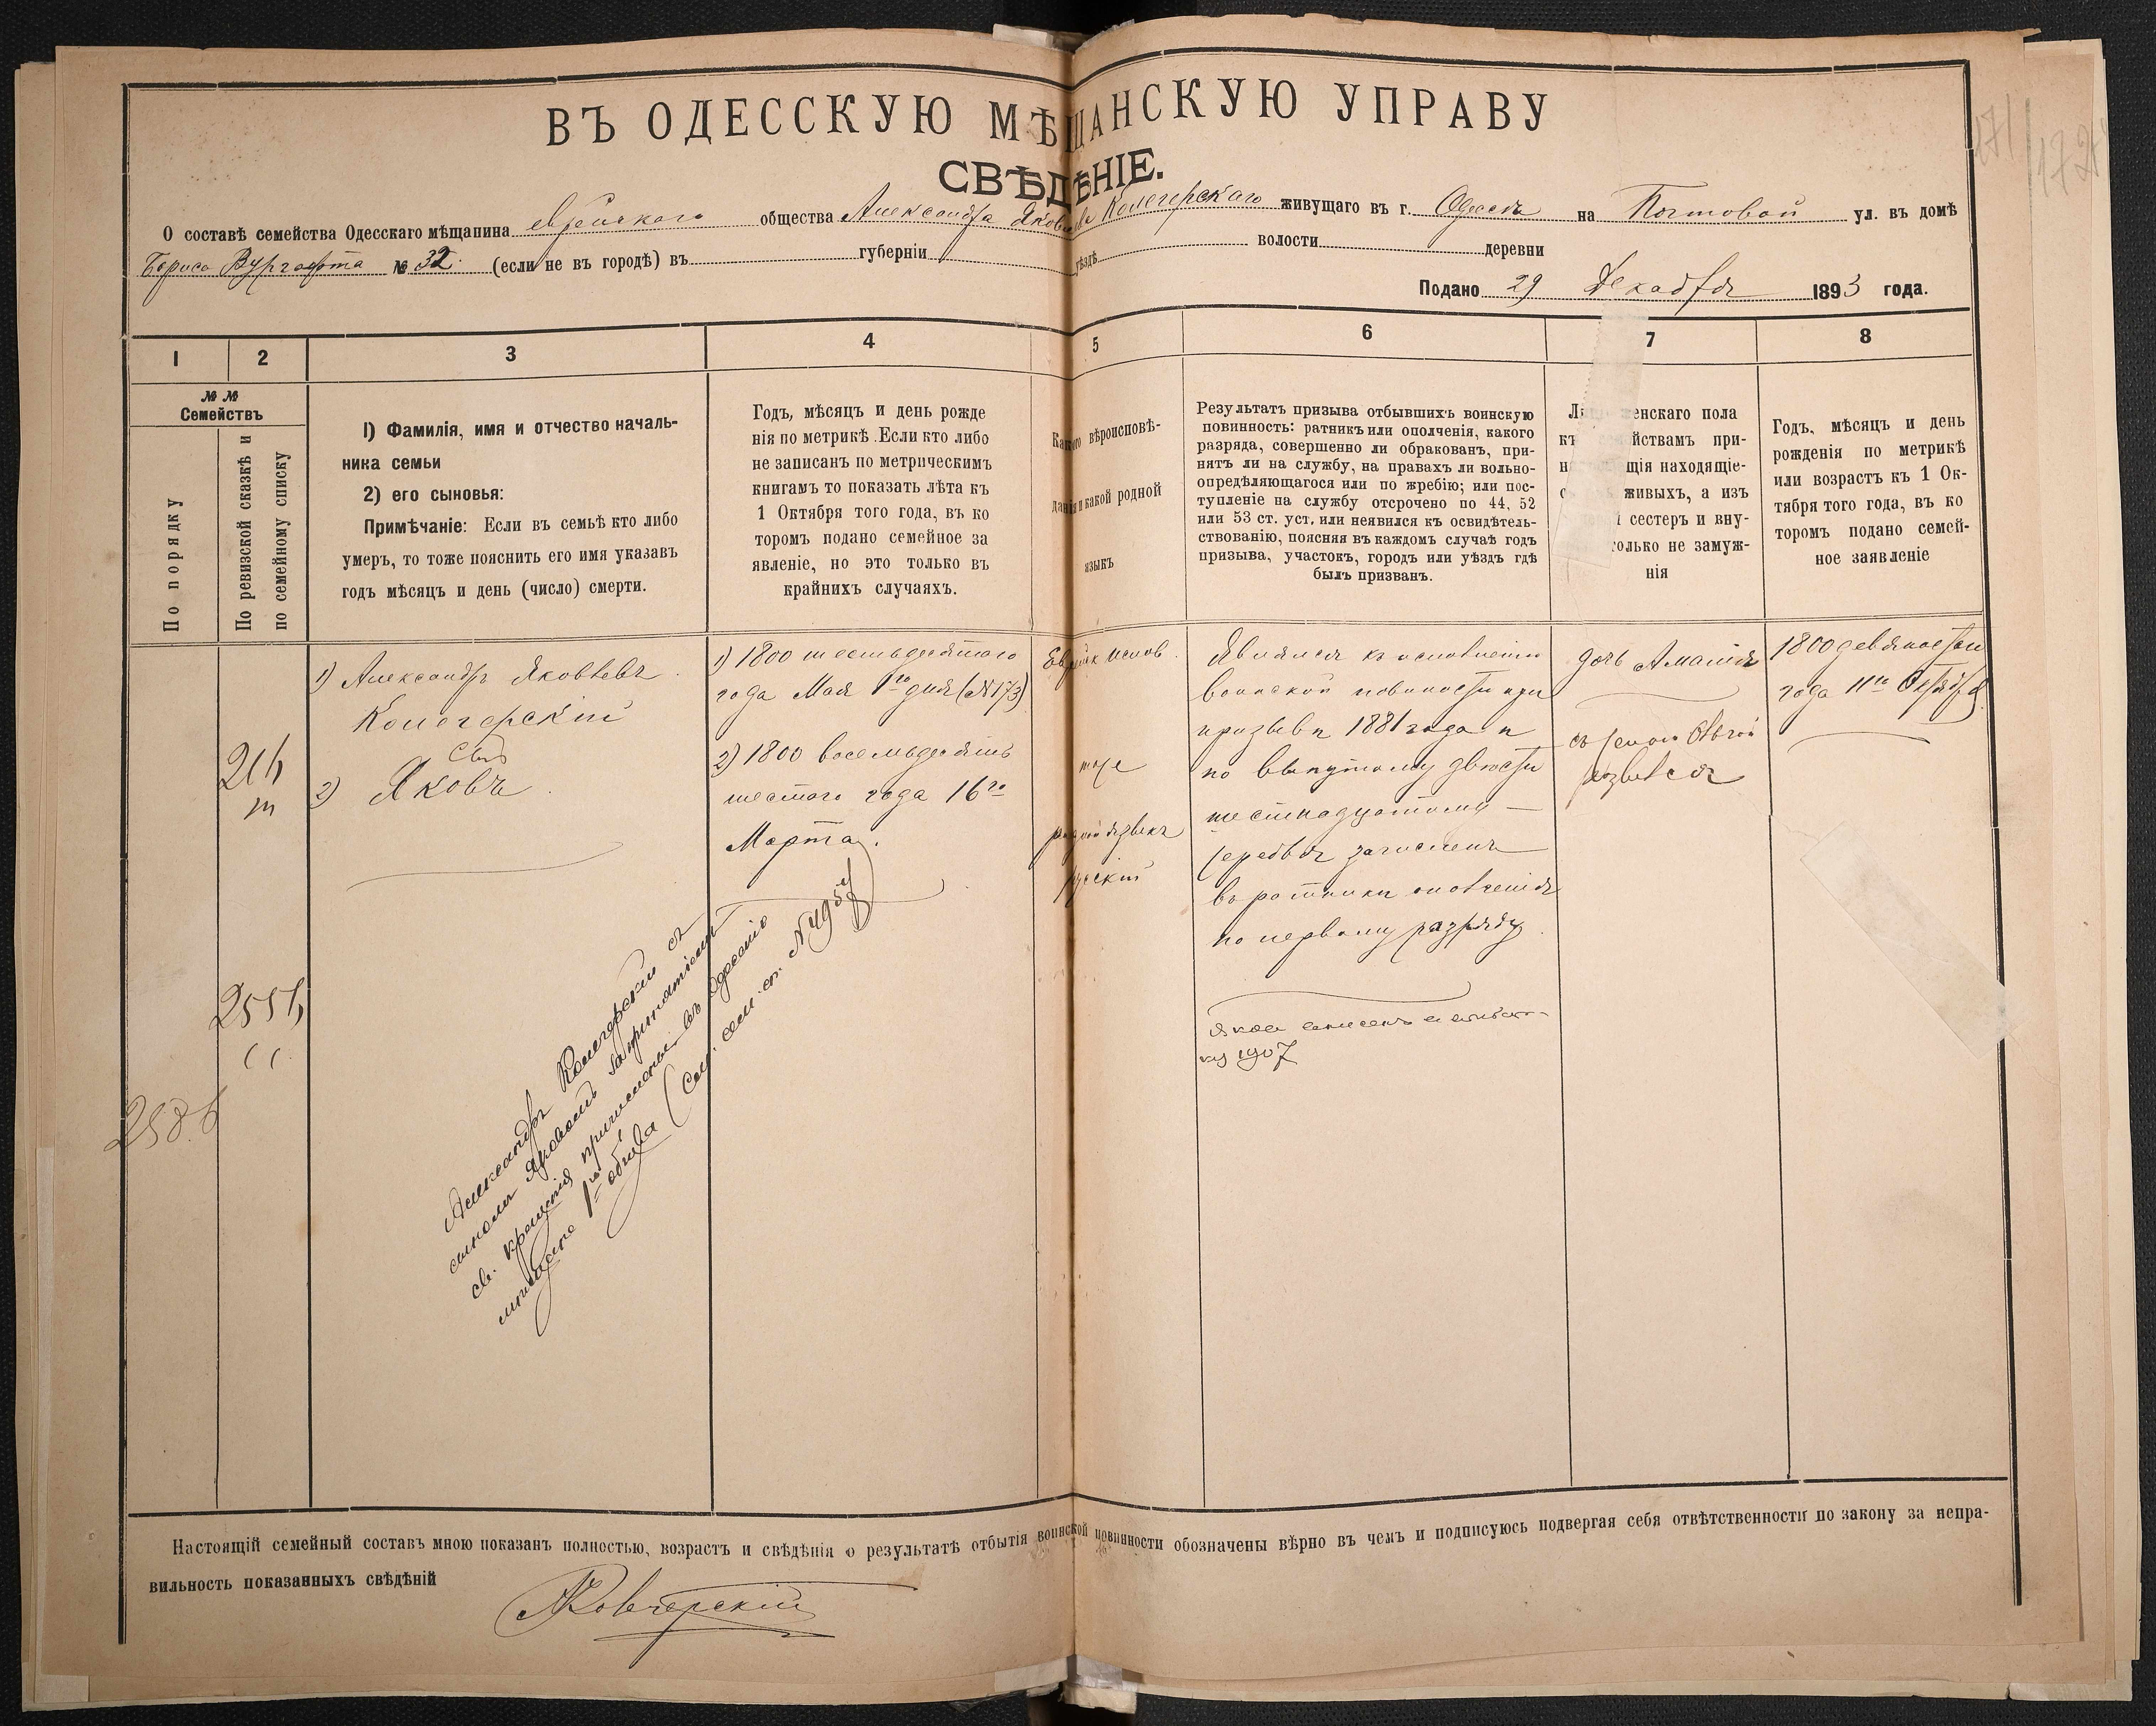 ВЪ ОДЕССКУЮ МѢЩАНСКУЮ УПРАВУ
СВѢДѢНІЕ.
О составѣ семейства Одесскаго мѣщанина еврейскаго общества Александра Яковлева живущаго въ г. Одессѣ на Почтовой ул. въ домѣ
Бориса № 32 (если не въ городѣ) въ губерніи уѣздѣ волости деревни
Подано 29 Декабря 1893 года.
1 2 3 4 5 6 7 8
№ №
Семействъ
По порядку
По ревизской сказкѣ и
по семейному списку
1) Фамилія, имя и отчество началь-
ника семьи
2) его сыновья:
Примѣчаніе: Если въ семьѣ кто либо
умеръ, то тоже пояснить его имя указавъ
годъ мѣсяцъ и день (число) смерти.
Годъ, мѣсяцъ и день рожде
нія по метрикѣ .Если кто либо
не записанъ по метрическимъ
книгамъ то показать лѣта къ
1 Октября того года, въ ко
торомъ подано семейное за
явленіе, но это только въ
крайнихъ случаяхъ.
Какого вѣроисповѣ-
данія и какой родной
языкъ
Результатъ призыва отбывшихъ воинскую
повинность: ратникъ или ополченія, какого
разряда, совершенно ли обракованъ, при-
нятъ ли на службу, на правахъ ли вольно-
опредѣляющагося или по жребію; или пос-
тупленіе на службу отсрочено по 44, 52
или 53 ст. уст. или неявился къ освидѣтель-
ствованію, поясняя въ каждомъ случаѣ годъ
призыва, участокъ, городъ или уѣздъ гдѣ
былъ призванъ.
женскаго пола
йствамъ при-
щія находящіе-
живыхъ, а изъ
сестеръ и вну-
олько не замуж-
нія
Годъ, мѣсяцъ и день
рожденія по метрикѣ
или возрастъ къ 1 Ок-
тября того года, въ ко
торомъ подано семей-
ное заявленіе
1) Александръ Яковлевъ
Сынъ
2) Яковъ
1) 1800 шестьдесятаго
года Мая 1го дня (№173)
2) 1800 восемьдесятъ
шестого года 16го
Марта.
тоже
родной языкъ
русскій
Явился къ исполненію
воинской повиности при
призывѣ 1881 года и
по вынутому двѣсти
шестнадцатому
жеребью зачисленъ
въ ратники ополченія
по первому разряду.
1907
дочь
съ женою
1800 девяностаго
года 11го Октября
Александръ съ
сыномъ Яковомъ за принятіемъ
св. крещенія причислены въ
мѣщане 1го общества (см. сем. сп. №
Настоящій семейный составъ мною показанъ полностью, возрастъ и свѣдѣнія о результатѣ отбытія воинской повинности обозначены вѣрно въ чемъ и подписуюсь подвергая себя отвѣтственности по закону за непра-
вильность показанныхъ свѣдѣній